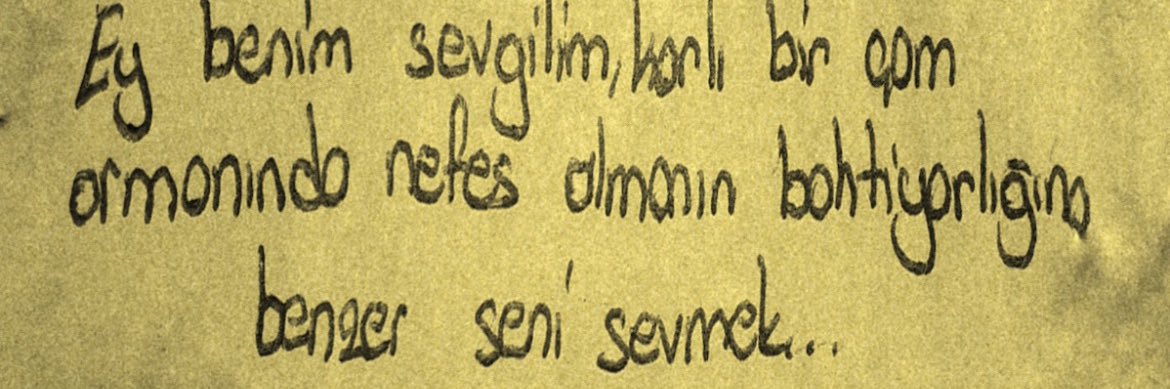 Ey benim sevgilim, karlı bir çam
ormanında nefes almanın bahtiyarlığına
benzer seni sevmek...